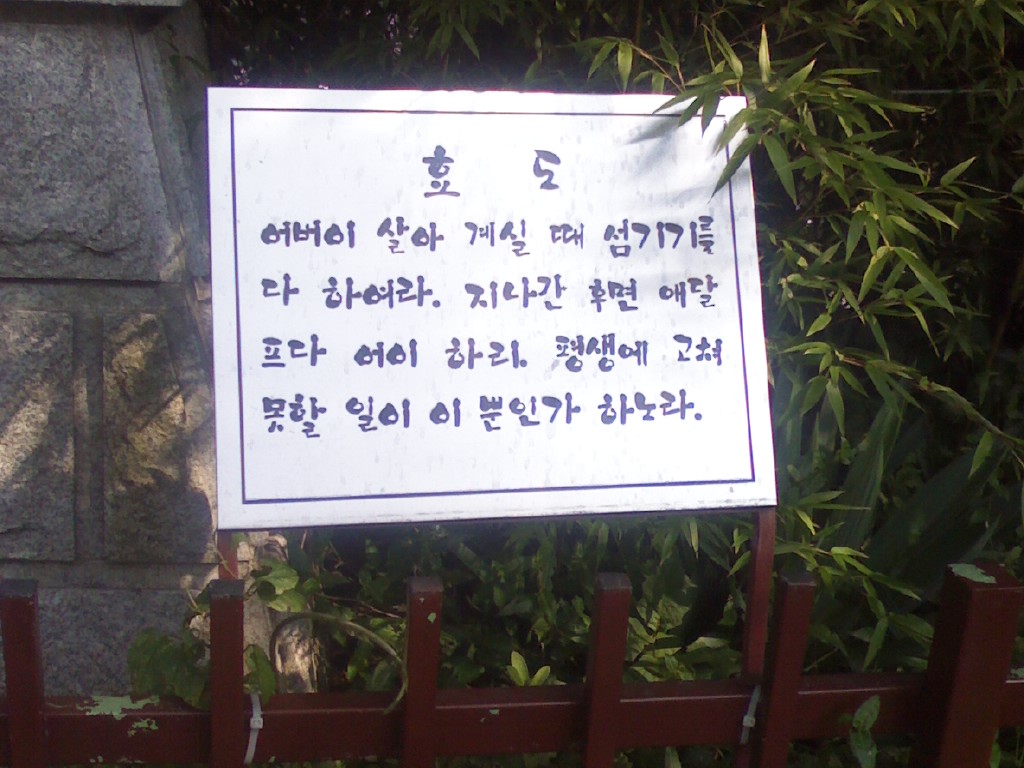 효 도
어버이 살아 계실 때 섬기기를
다 하여라. 지나간 후면 애달
프다 어이 하리. 평생에 고쳐
못할 일이 이 뿐인가 하노라.